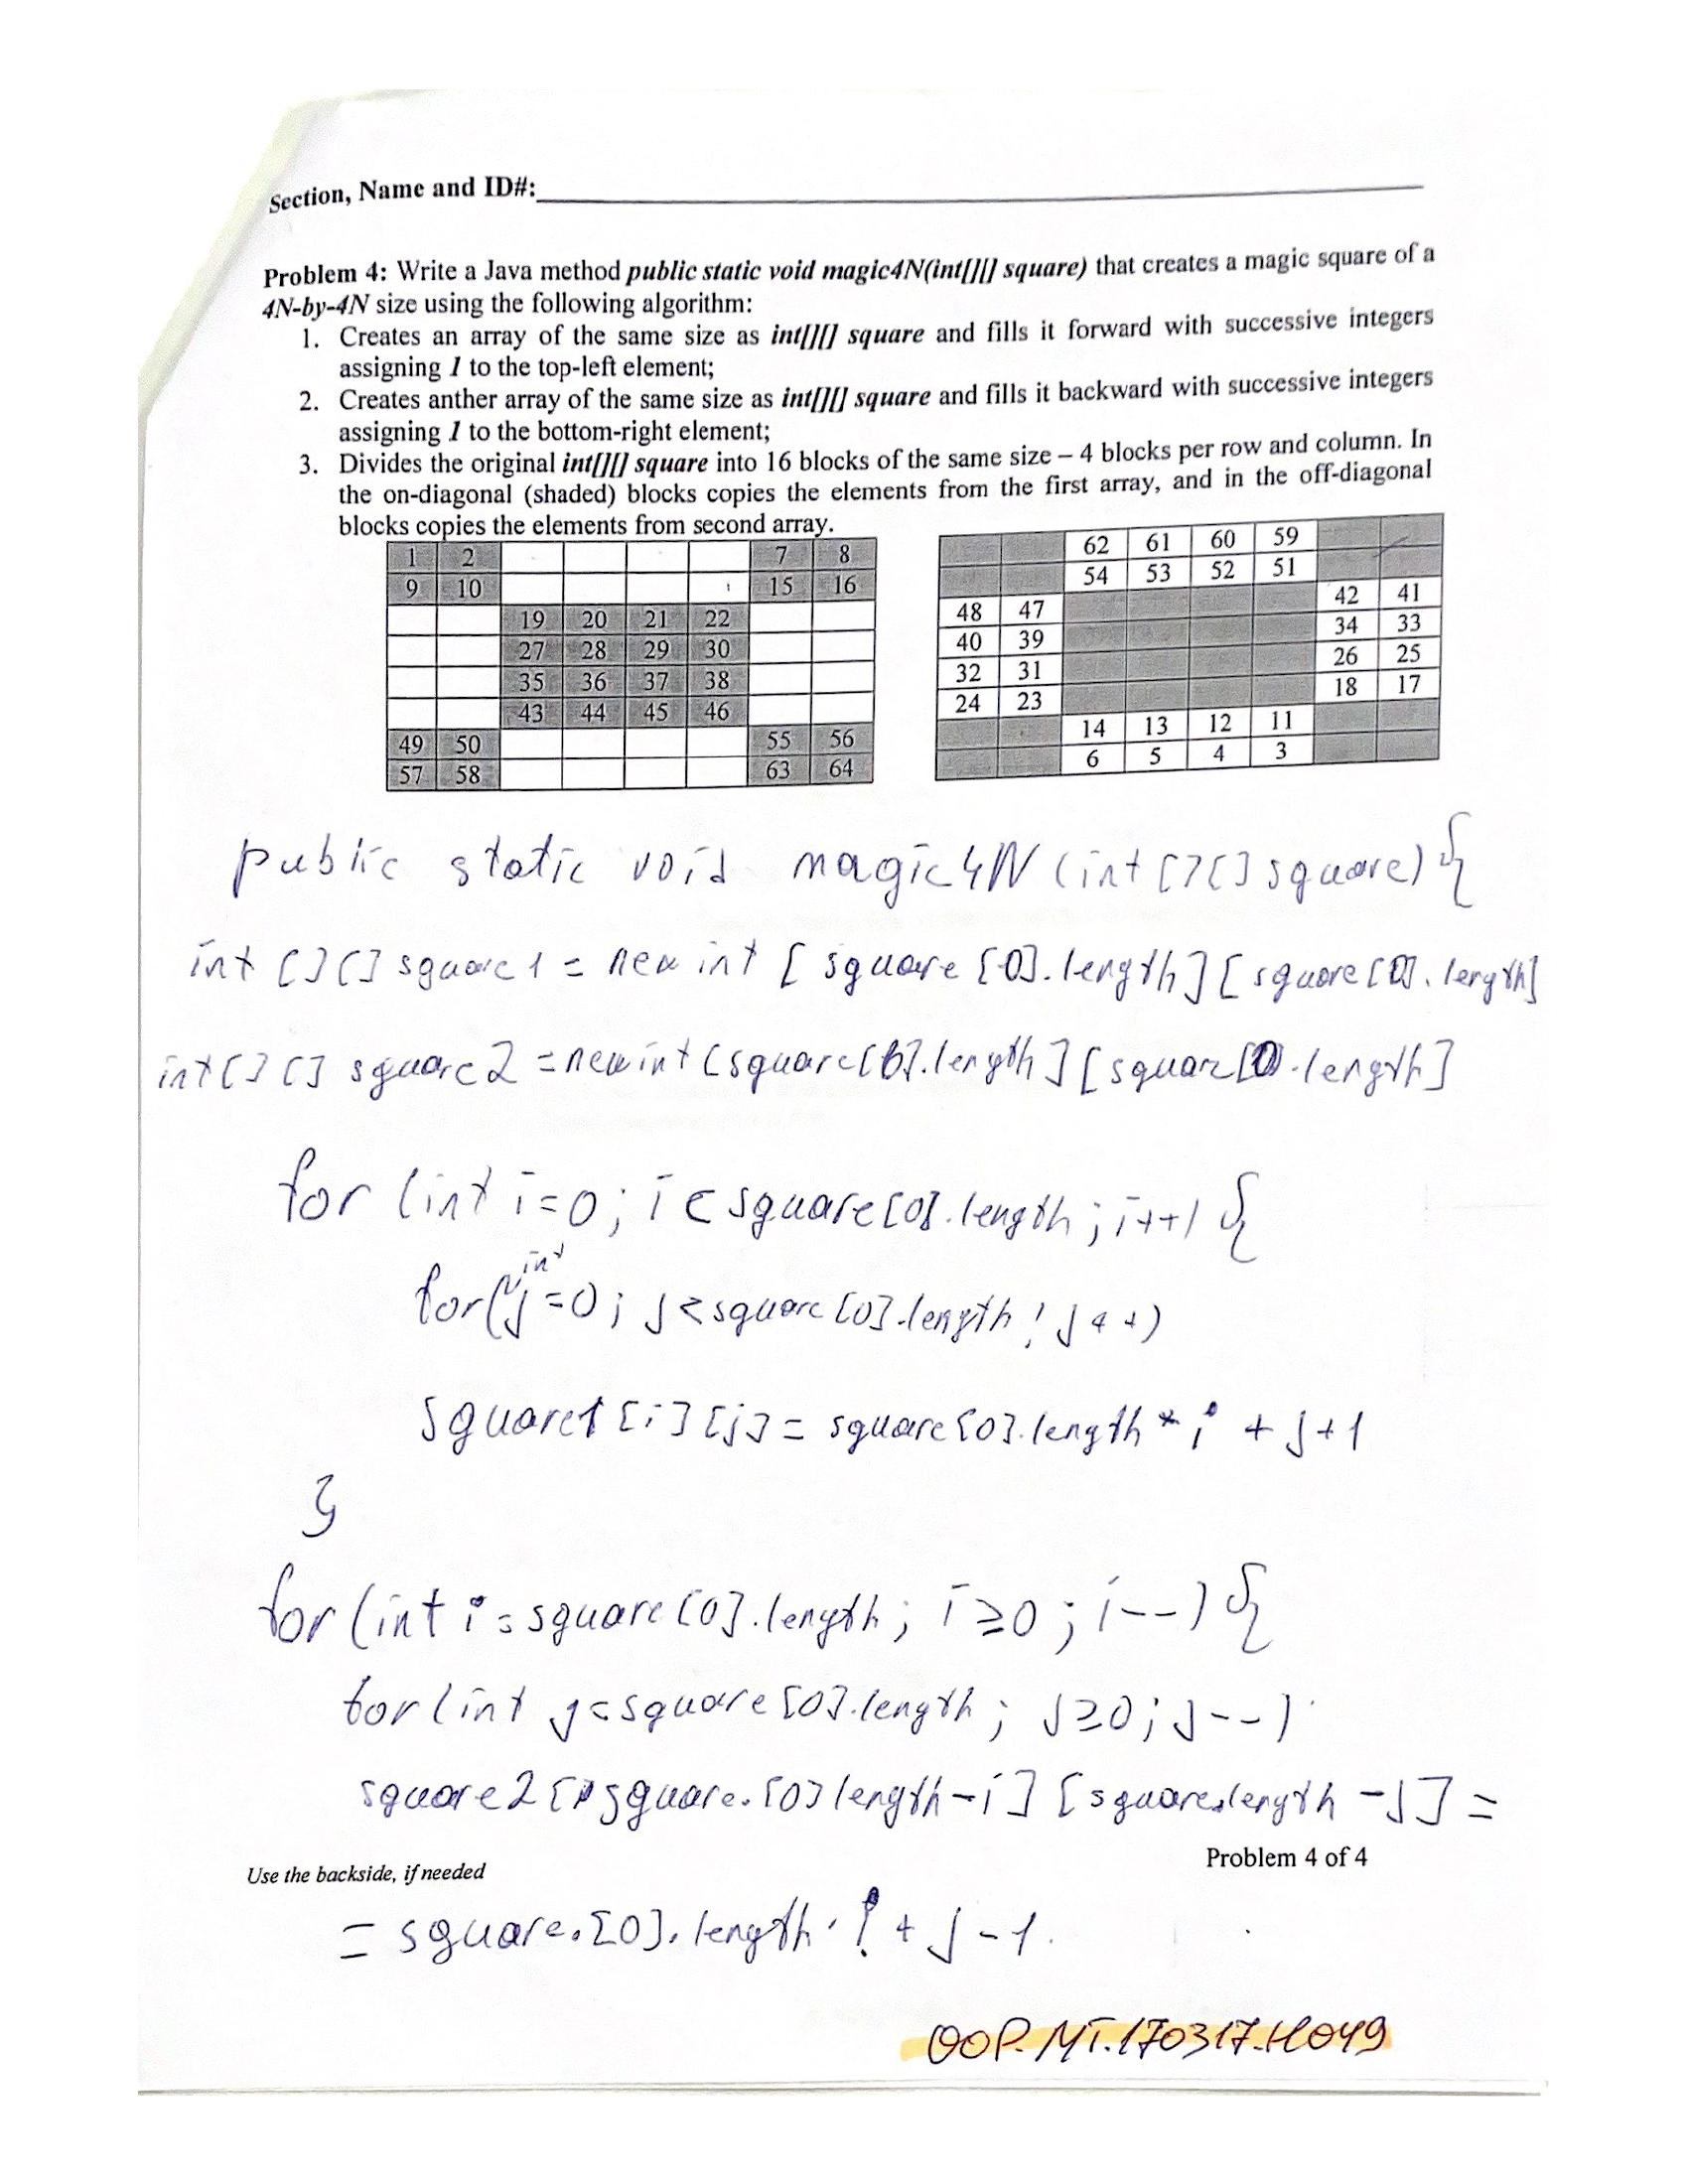 Section, Name and ID#:
Problem 4: Write a Java method public static void magic4N(int[][] square) that creates a magic square of a
4N-by-4N size using the following algorithm:
1. Creates an array of the same size as int[][] square and fills it forward with successive integers
assigning 1 to the top-left element;
2. Creates anther array of the same size as int[][] square and fills it backward with successive integers
assigning 1 to the bottom-right element;
3. Divides the original int[][] square into 16 blocks of the same size – 4 blocks per row and column. In
the on-diagonal (shaded) blocks copies the elements from the first array, and in the off-diagonal
blocks copies the elements from second array.
1 2 7 8
9 10 15 16
19 20 21 22
27 28 29 30
35 36 37 38
43 44 45 46
49 50 55 56
57 58 63 64
62 61 60 59
54 53 52 51
48 47 42 41
40 39 34 33
32 31 26 25
24 23 18 17
14 13 12 11
6 5 4 3
public static void magic4N (int [][] square) {
int [][] square1 = new int [ square [0].length] [ square [0]. length]
int [][] square2 = new int [square[0].length] [square[0].length]
for (int i=0; i < square[0].length; i++) {
for(int j=0; j<square[0].length; j++)
square1 [i] [j] = square[0].length * i + j+1
}
for (int i = square[0].length; i≥0; i--) {
for (int j=square[0].length; j≥0; j--)
square2 [square.[0] length-i] [square.length -j] =
Use the backside, if needed
Problem 4 of 4
= square.[0].length · i + j - 1.
OOP.MT.170317.H049